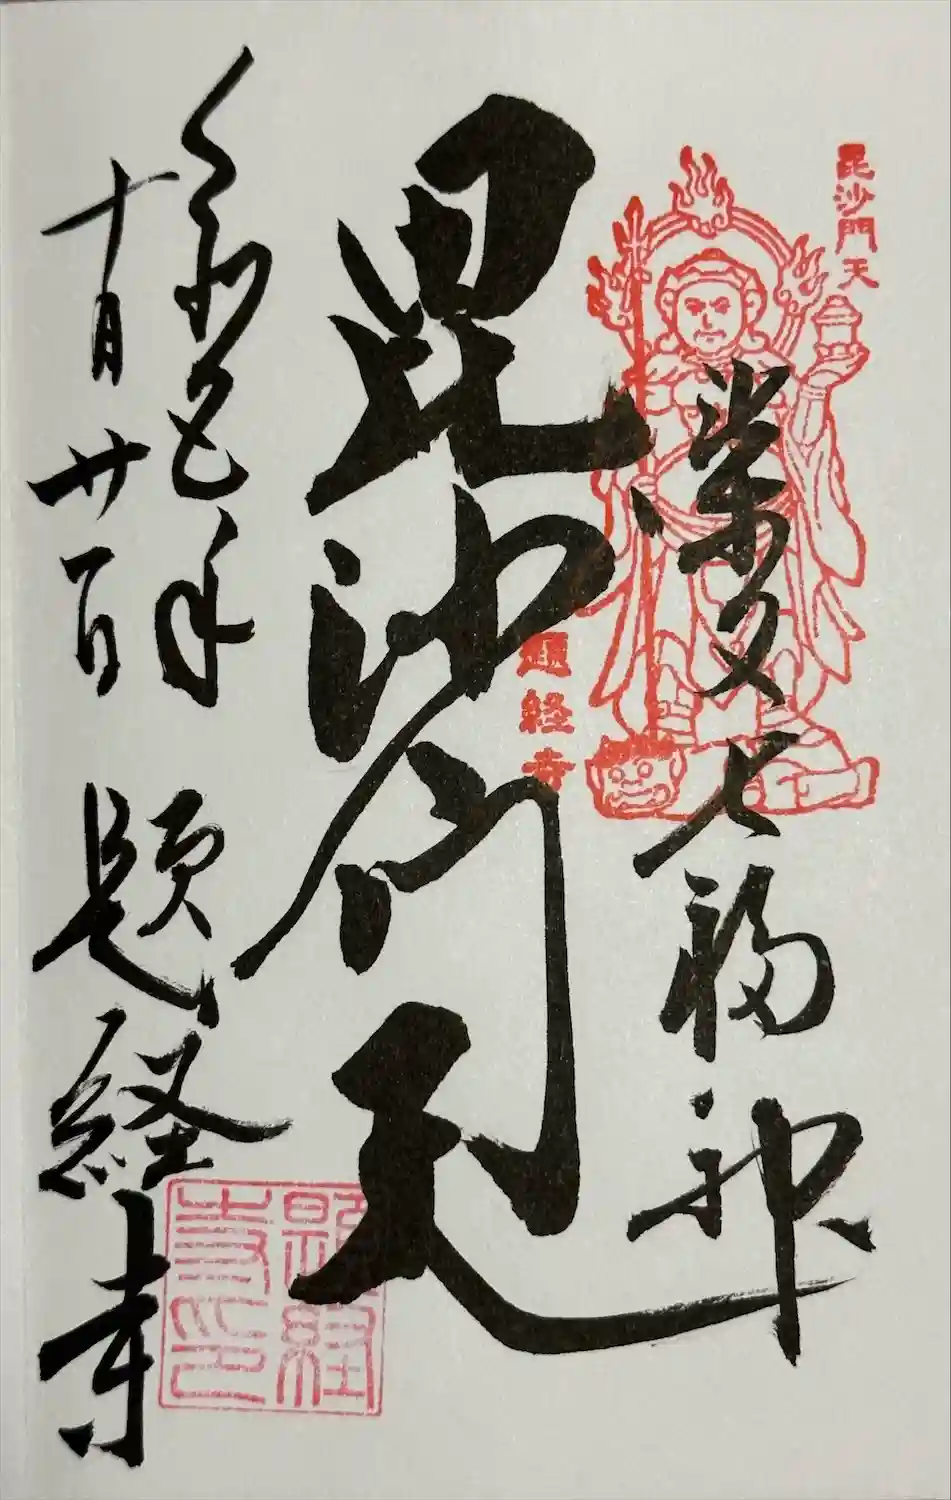 毘沙門天
柴又七福神
毘沙門天
題経寺
令和七年
十月廿一日
題経寺
題経寺印